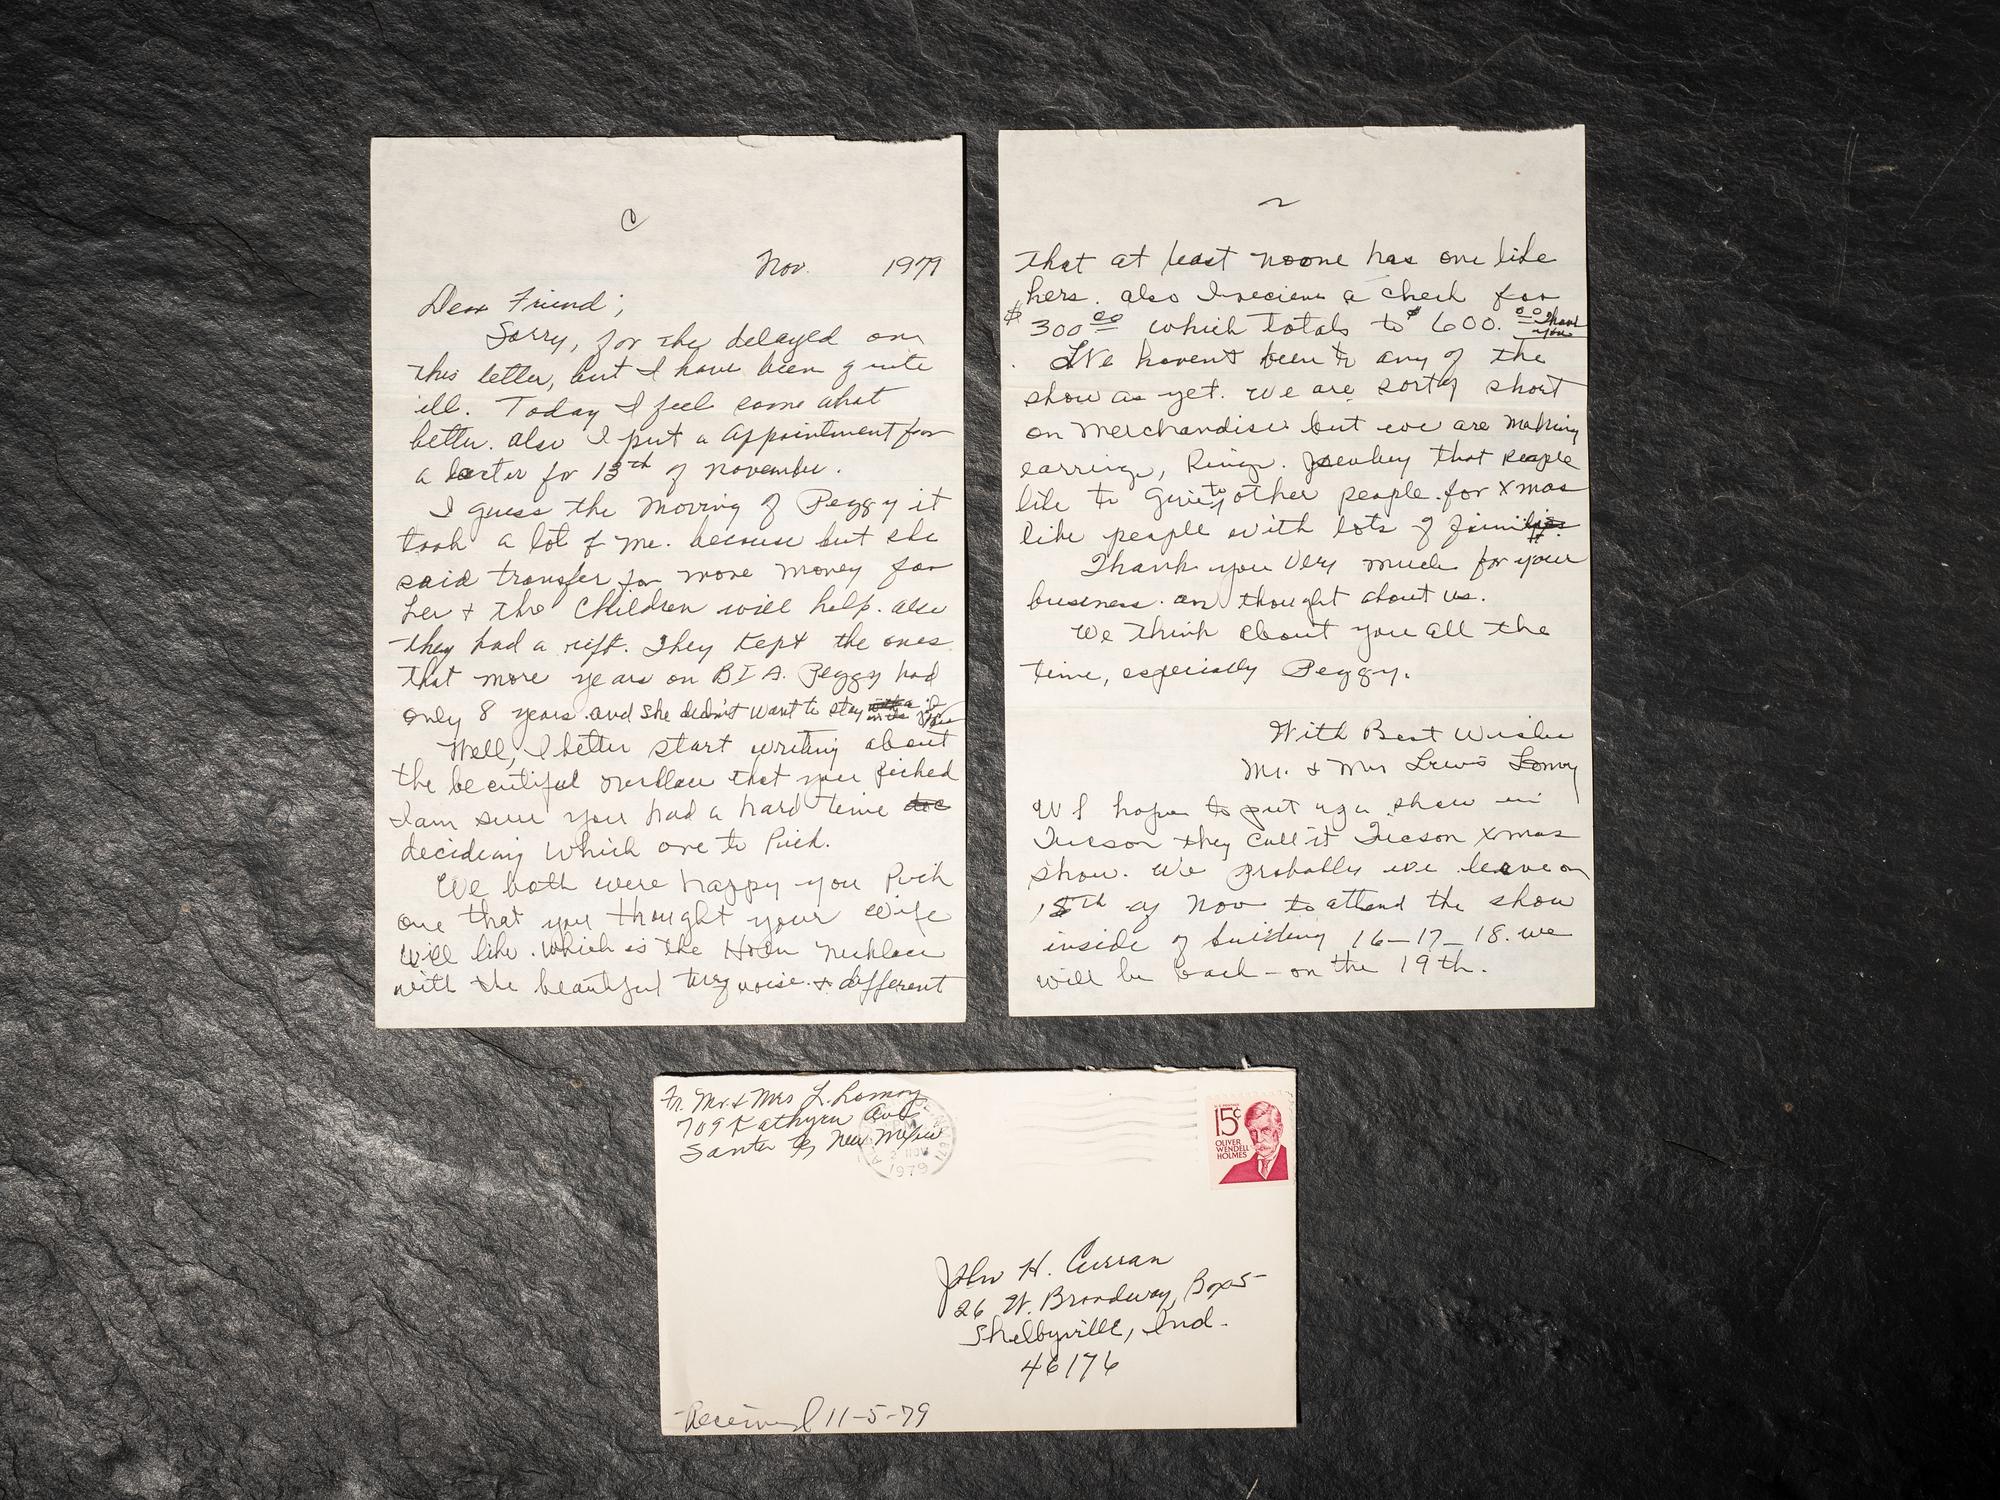 Nov. 1979
Dear Friend;
Sorry, for the delayed on
this letter, but I have been quite
ill. Today I feel some what
better. also I put a appointment for
a docter for 13th of november.
I guess the moving of Peggy it
took a lot of me. because but she
said transfer for more money for
her + the children will help. also
they had a rift. They kept the ones
that more years on BIA. Peggy had
only 8 years. and she didn't want to stay
Well, I better start writing about
the beautiful necklace that you picked
I am sure you had a hard time
deciding which one to Pick.
We both were happy you Pick
one that you thought your wife
will like. which is the Hoen necklace
with the beautiful turquoise. + different
2
that at least noone has one like
hers. also I recieve a check for
$300.00 which totals to $600.00 Thank you
We havent been to any of the
show as yet. we are sort of short
on merchandise but we are making
earring, Ring. Jewelrey that people
like to give to other people. for Xmas
like people with lots of
Thank you very much for your
business. an thought about us.
We think about you all the
time, especially Peggy.
With Best Wishes
Mr. & Mrs Lewis Lomay
We hope to put up a show in
Tucson they call it Tucson Xmas
show. We probably we leave on
15th of Nov to attend the show
inside of building 16-17-18. we
will be back - on the 19th.
Fr. Mr. & Mrs L. Lomay
709 Kathryn Ave
Santa Fe, New Mexico
2 NOV
1979
U.S. POSTAGE
15¢
OLIVER
WENDELL
HOLMES
John H. Curran
26 W. Broadway, Box 5
Shelbyville, Ind.
46176
Received 11-5-79